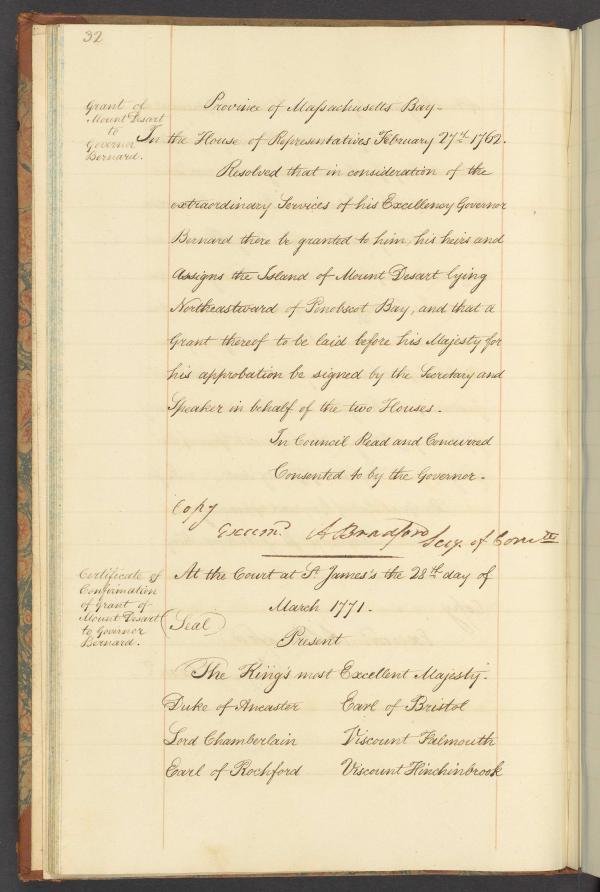 32
Grant of
Mount Desart
to
Governor
Bernard.
Province of Massachusetts Bay -
In the House of Representatives February 27th 1762.
Resolved that in consideration of the
extraordinary Services of his Excellency Governor
Bernard there be granted to him, his heirs and
Assigns the Island of Mount Desart lying
Northeastward of Penobscot Bay, and that a
Grant thereof to be laid before his Majesty for
his approbation be signed by the Secretary and
Speaker in behalf of the two Houses.
In Council Read and Concurred
Consented to by the Governor.
Copy
Examd. A Bradford Secy. of Comth
Certificate of
Confirmation
of Grant of
Mount Desart
to Governor
Bernard.
At the Court at St. James's the 28th day of
March 1771.
Seal
Present
The King's most Excellent Majesty.
Duke of Ancaster Earl of Bristol
Lord Chamberlain Viscount Falmouth
Earl of Rochford Viscount Hinchinbrook